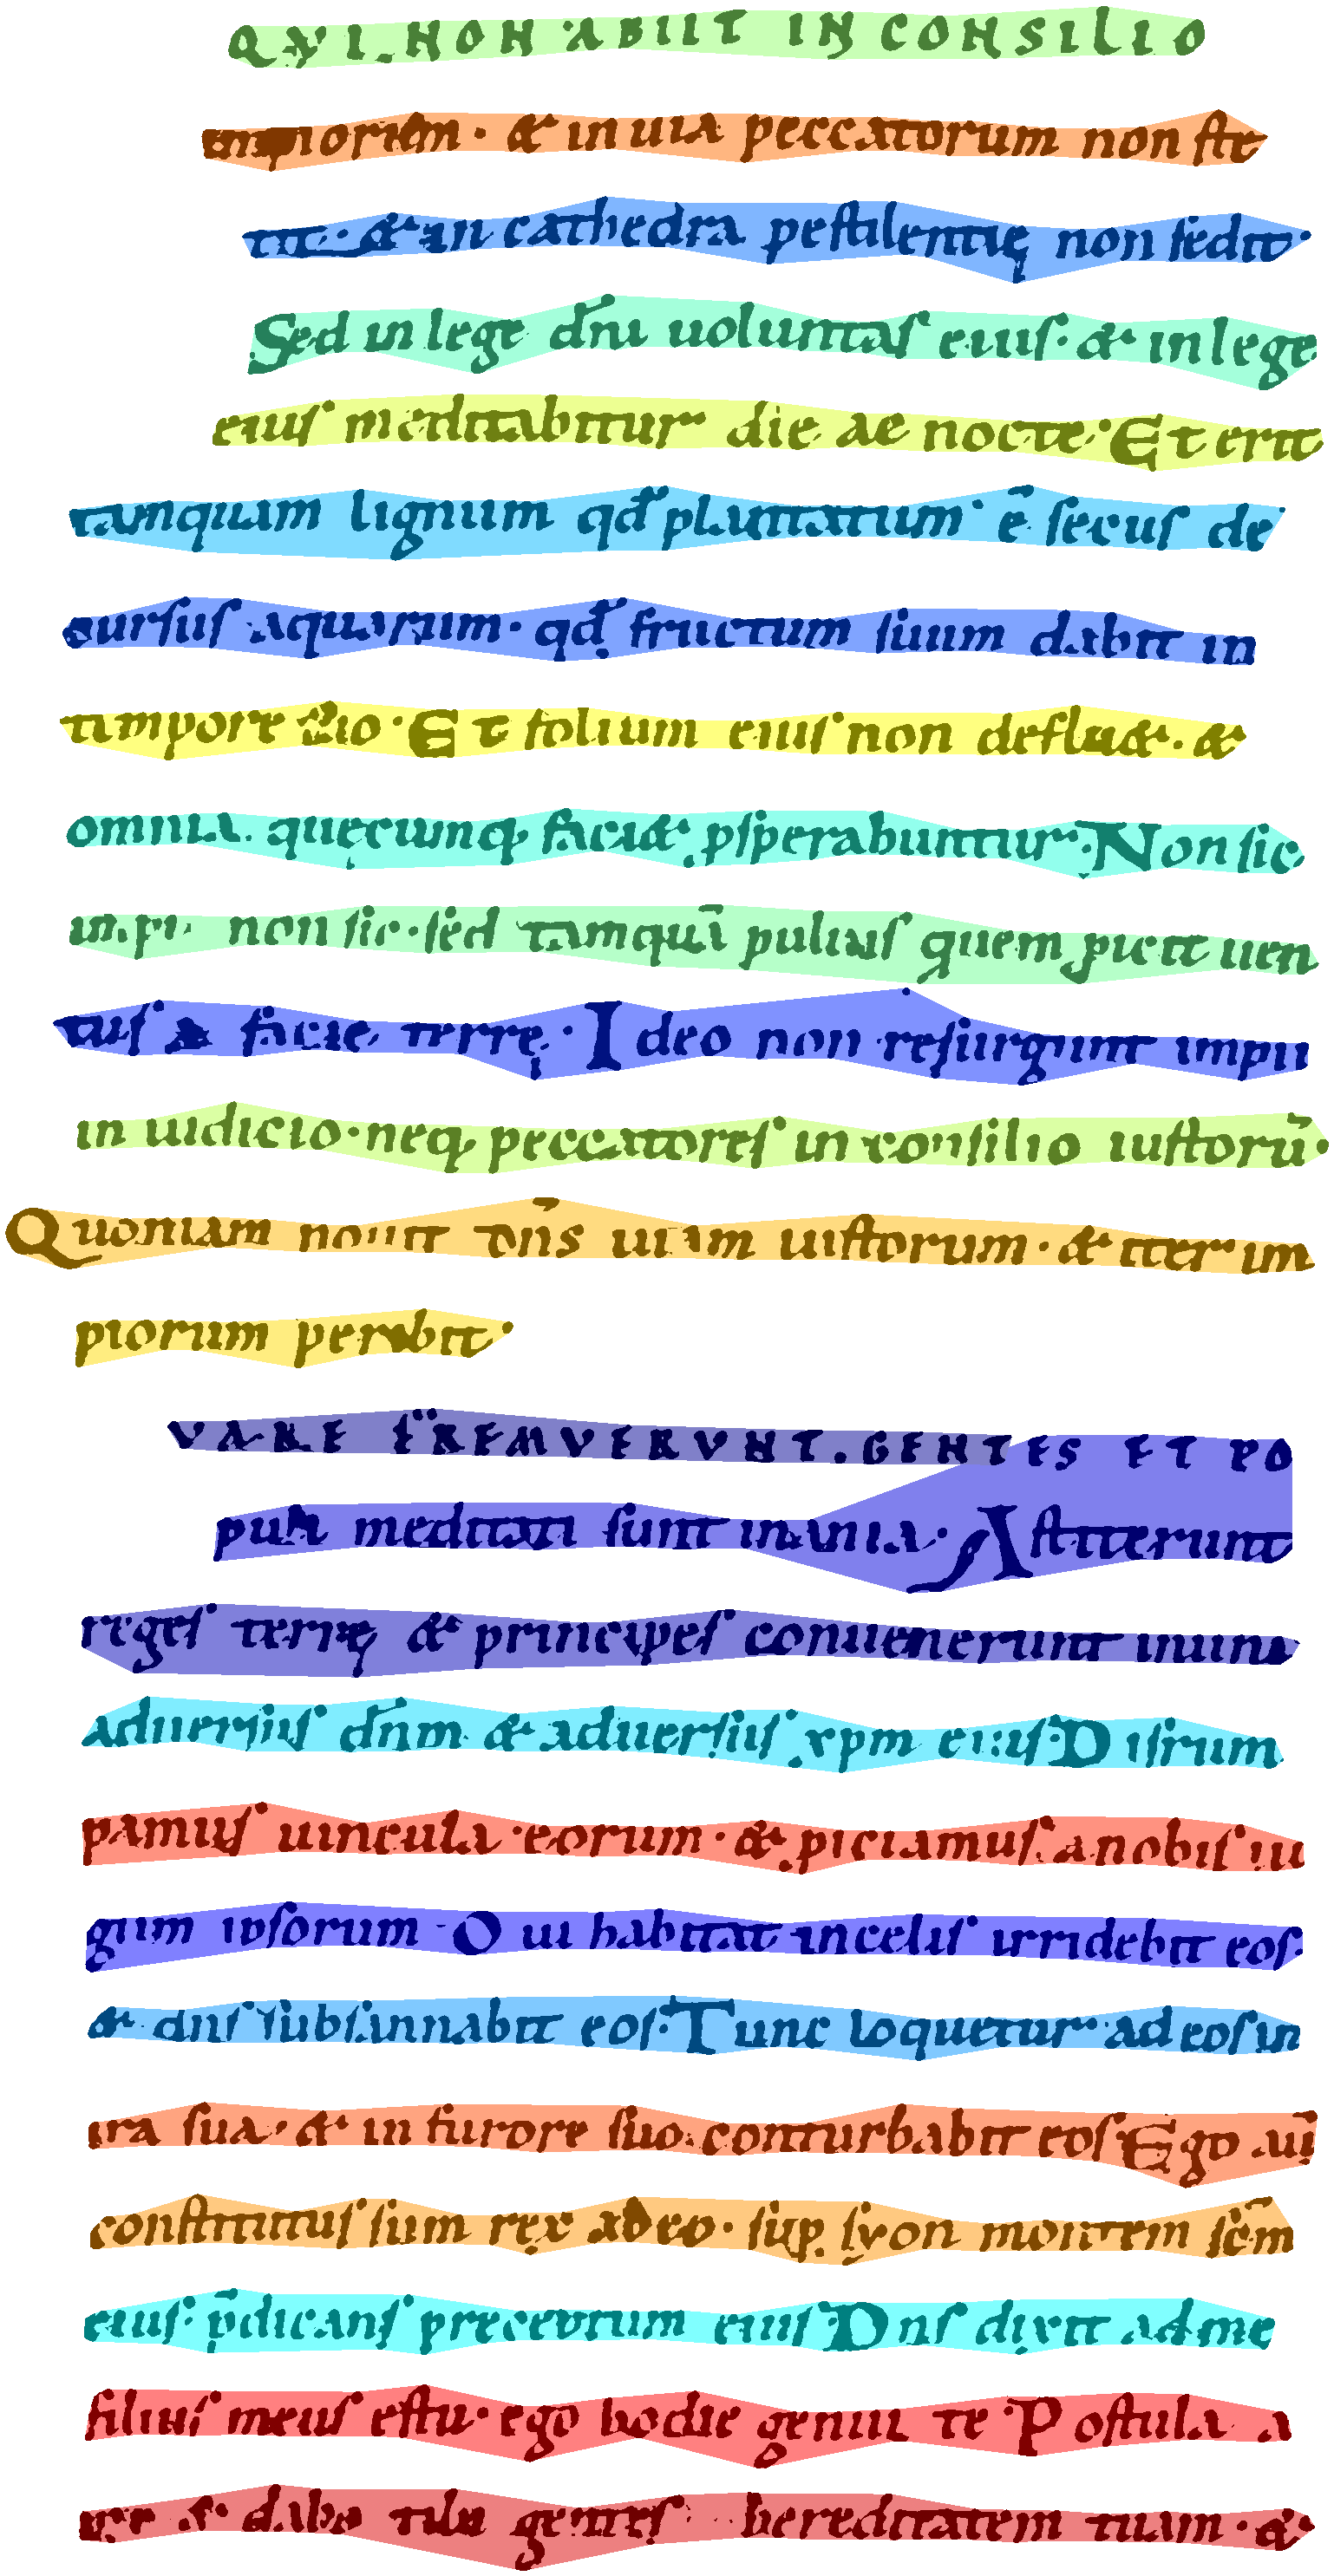 QVI NON ABIIT IN CONSILIO
impiorum · & in uia peccatorum non ſte
tit · & in cathedra peſtilentię non ſedit·
Sed in lege dn̄i uoluntaſ eiuſ · & in lege
eiuſ meditabitur die ac nocte · Et erit
tamquam lignum qd̄ plantatum ē ſecuſ de
curſuſ aquarum · qd̄ fructum ſuum dabit in
tempore ſuo · Et folium eiuſ non deflu& · &
omnia quęcumq; faci& pſperabuntur · Non ſic
impii non ſic · ſed tamquā puluiſ quem picit uen
tuſ a facie terrę · Ideo non reſurgunt impii
in iudicio · neq; peccatoreſ in conſilio iuſtorū·
Quoniam nouit dn̄s uiam iuſtorum · & iter im
piorum peribit·
VARE FREMVERVNT · GENTES ET PO
puli meditati ſunt inania · Aſtiterunt
regeſ terrę & principeſ conuenerunt inunū
aduerſuſ dn̄m & aduerſuſ xpm eiuſ · Diſrum
pamuſ uincula eorum · & piciamuſ a nobiſ iu
gum ipſorum · Qui habitat in celiſ irridebit eoſ·
& dnſ ſubſannabit eoſ · Tunc loquetur ad eoſ in
ira ſua · & in furore ſuo conturbabit eoſ Ego aū
conſtitutuſ ſum rex ab eo · ſup ſyon montem ſc̄m
eiuſ · p̄dicanſ preceptum eiuſ Dnſ dixit ad me
filiuſ meuſ eſ tu · ego hodie genui te · Poſtula a
me & dabo tibi genteſ hereditatem tuam · &